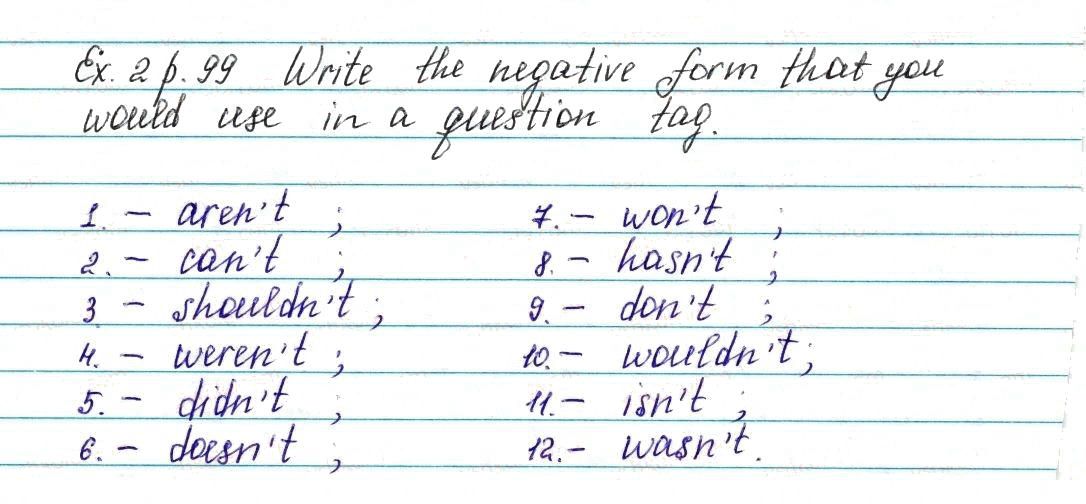 Ex. 2 p. 99 Write the negative form that you
would use in a question tag.
1. – aren't ;
2. – can't ;
3 – shouldn't ;
4. – weren't ;
5. – didn't ;
6. – doesn't ;
7. – won't ;
8. – hasn't ;
9. – don't ;
10. – wouldn't ;
11. – isn't ;
12. – wasn't.